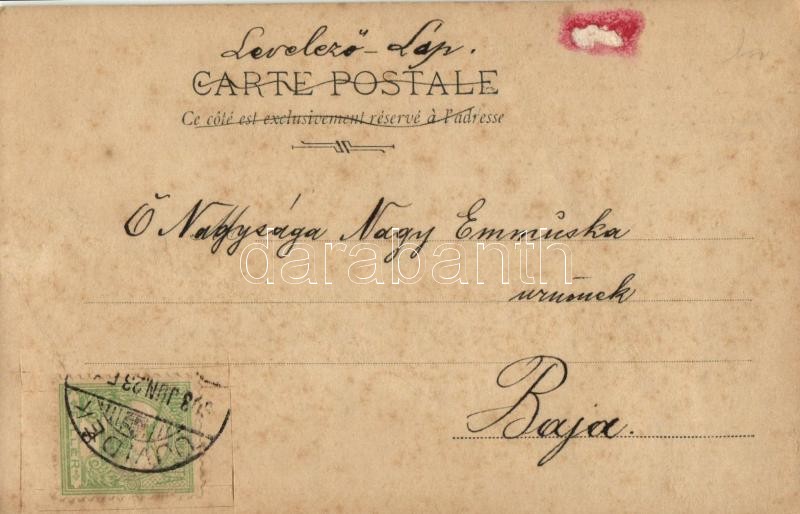 Levelező-Lap.
CARTE POSTALE
Ce côté est exclusivement réservé à l'adresse
Ő Nagysága Nagy Emmuska
urnőnek
Baja.
darabanth
903 JUN. 23
UJVIDÉK